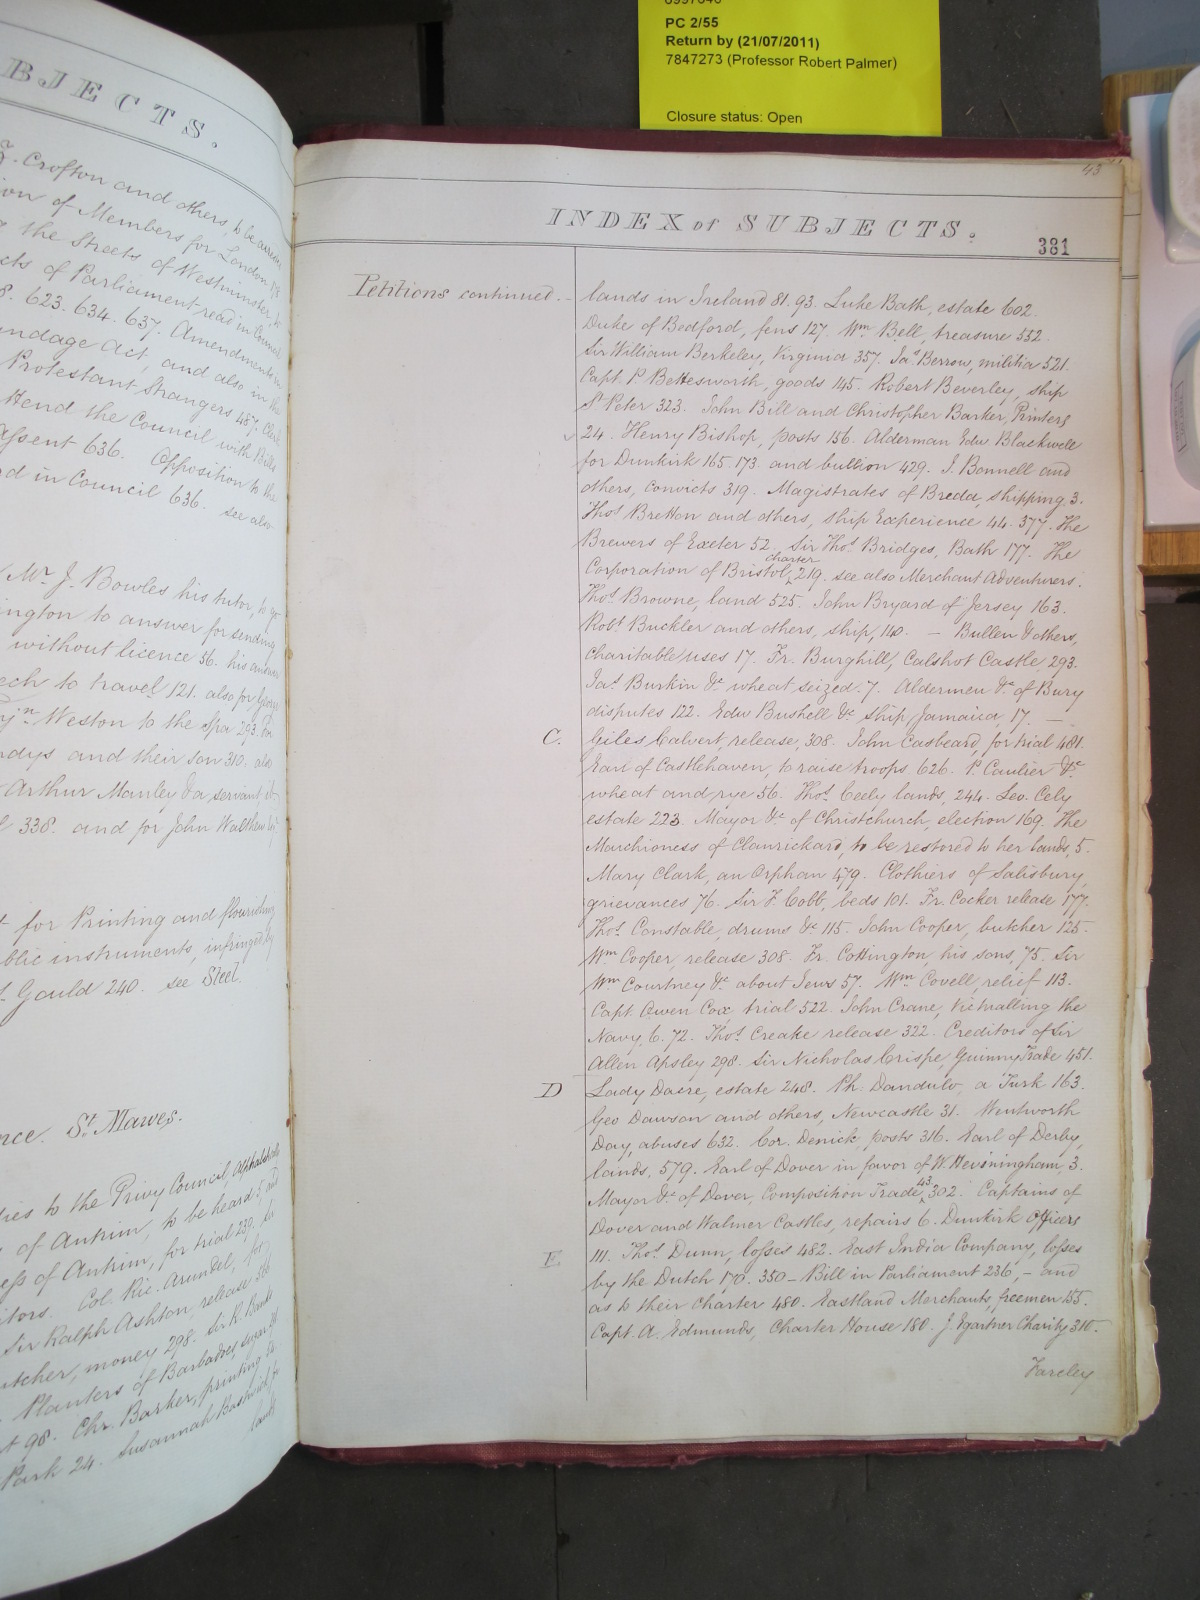 PC 2/55
Return by (21/07/2011)
7847273 (Professor Robert Palmer)
Closure status: Open
BJECTS.
Crofton and others, to be
ion of Members for London
the Streets of Westminster,
cts of Parliament read in Council
8. 623. 634. 637. Amendments
undage Act, and also in the
Protestant Strangers 487. Clerk
ttend the Council with Bills
Assent 636. Opposition to the
d in Council 636. see also
Mr. J. Bowles his tutor, to go
ington to answer for sending
without licence 56. his answer
ech to travel 121. also for
Weston to the Spa 293. for
ndys and their son 310. also
Arthur Manley & a servant,
338. and for John Walthew
for Printing and flourishing
blic instruments, infringed by
Gould 240. see Steel.
nce. St. Mawes.
ies to the Privy Council, Alphabetically
of Antrim, to be heard 5, and
ess of Antrim, for trial 239.
itors. Col. Ric. Arundel, for
Sir Ralph Ashton, release
utcher, money 298. Sir R. Banks
Planters of Barbadoes, sugar
98. Chr. Barker, printing
Park 24. Susannah Bastwick, for
lands
43
INDEX of SUBJECTS.
381
Petitions continued. -
lands in Ireland 81. 93. Luke Bath, estate 602.
Duke of Bedford, fens 127. Wm Bell, treasure 552.
Sir William Berkeley, Virginia 357. Jas. Berrow, militia 521.
Capt. P. Bettesworth, goods 145. Robert Beverley, ship
St Peter 323. John Bill and Christopher Barker, Printers
24. Henry Bishop, posts 156. Alderman Edw Blackwell
for Dunkirk 165. 173. and bullion 429. J. Bonnell and
others, convicts 319. Magistrates of Breda, shipping 3.
Thos Bretton and others, ship Experience 44. 377. The
Brewers of Exeter 52. Sir Thos. Bridges, Bath 177. The
Corporation of Bristol, charter 219. see also Merchant Adventurers.
Thos. Browne, land 525. John Bryard of Jersey 163.
Robt. Buckler and others, ship, 140. - Bullen & others,
charitable uses 17. Fr. Burghill, Calshot Castle, 293.
Jas. Burkin &c wheat seized. 7. Aldermen &c of Bury
disputes 122. Edw Bushell &c ship, Jamaica, 17. —
C. Giles Calvert, release, 308. John Casbeard, for trial 481.
Earl of Castlehaven, to raise troops 626. P. Caulier &c
wheat and rye 56. Thos. Ceely lands, 244. Leo. Cely
estate 223. Mayor &c of Christchurch, election 169. The
Marchioness of Clanrickard, to be restored to her lands, 5.
Mary Clark, an Orphan 479. Clothiers of Salisbury,
grievances 76. Sir F. Cobb, beds 101. Fr. Cocker release 177.
Thos. Constable, drums &c 115. John Cooper, butcher 125.
Wm Cooper, release 308. Fr. Cottington, his sons, 75. Sir
Wm Courtney &c about Jews 57. Wm Covell, relief 113.
Capt. Owen Cox, trial 522. John Crane, Victualling the
Navy, 6. 72. Thos. Creake release 322. Creditors of Sir
Allen Apsley 298. Sir Nicholas Crispe, Guinny Trade 451.
D Lady Dacre, estate 248. Ph. Dandulo, a Turk 163.
Geo Dawson and others, Newcastle 31. Wentworth
Day, abuses 632. Cor. Denick, posts 316. Earl of Derby,
lands, 579. Earl of Dover in favor of W. Heveningham, 3.
Mayor &c of Dover, Composition Trade, 43. 302. Captains of
Dover and Walmer Castles, repairs 6. Dunkirk Officers
E 111. Thos. Dunn, losses 482. East India Company, losses
by the Dutch, 170. 350 - Bill in Parliament 236, - and
as to their Charter 480. Eastland Merchants, freemen 155.
Capt. A. Edmunds, Charter House 180. J. Egartner Charity 310.
Fareley